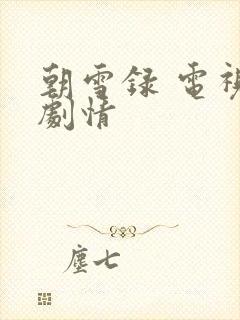 朝雪録 電視
劇情
塵七